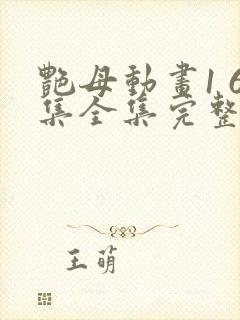 艷母動畫1 6
集全集完整
王萌